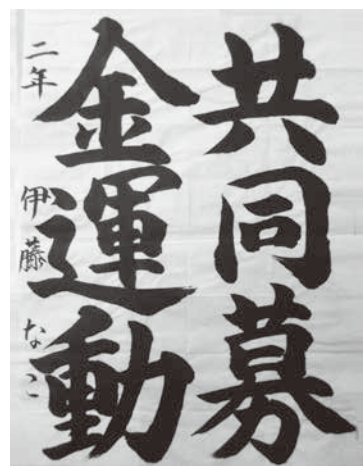 共同募
金運動
二年 伊藤 なこ